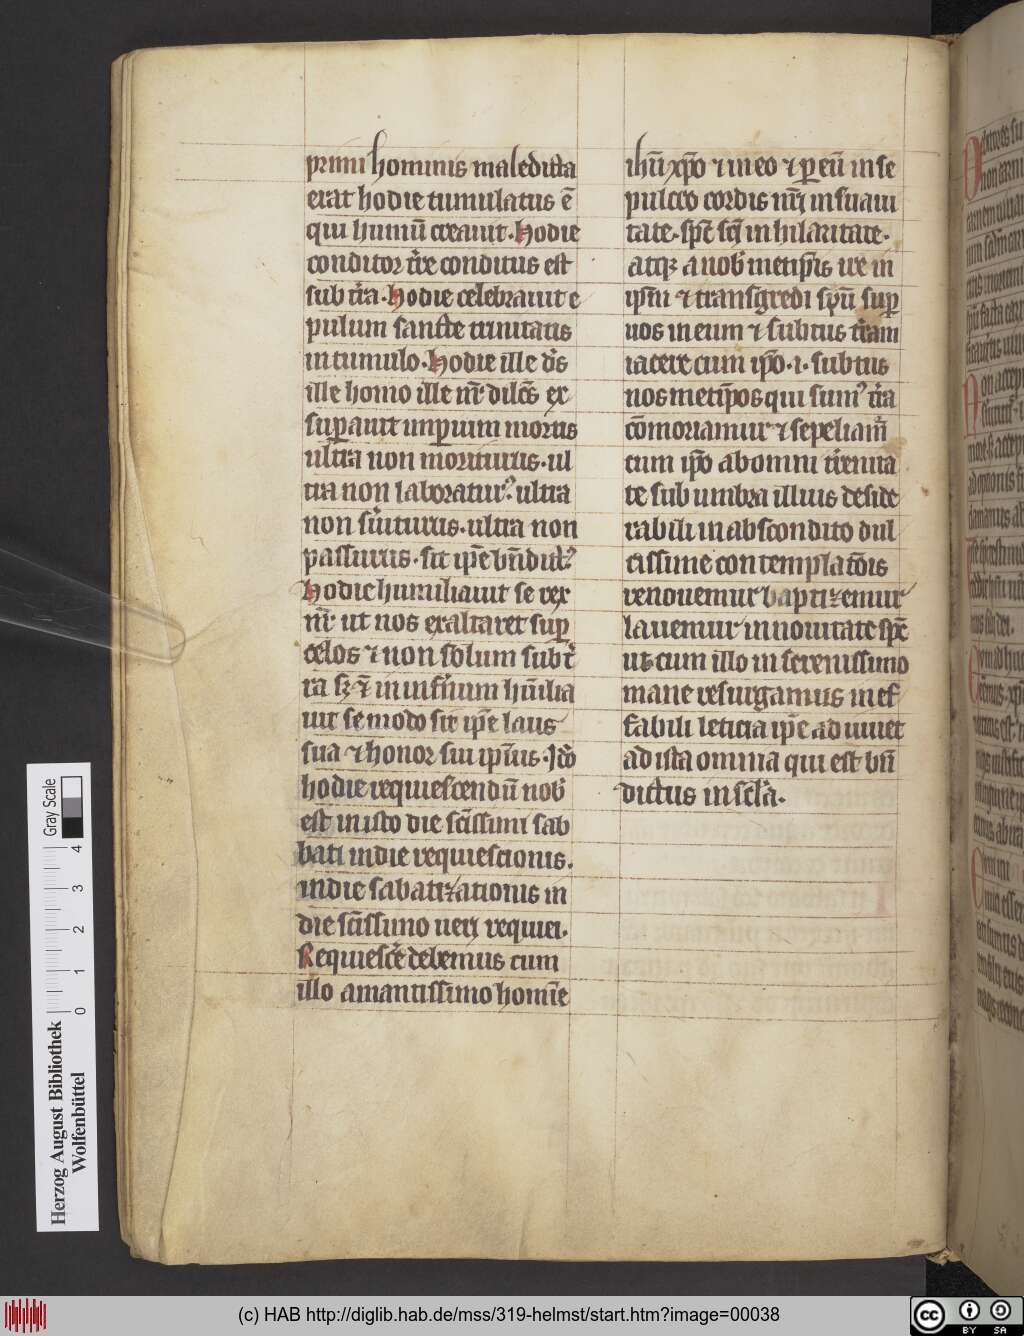 primi hominis maledicta
erat hodie tumulatus ē
qui humū creauit. Hodie
conditor t̄re conditus est
sub t̄ra. Hodie celebrauit e
pulum sancte trinitatis
in tumulo. Hodie ille dn̄s
ille homo ille nr̄ dilc̄s ex
suꝑauit imꝑium mortis
ultra non moriturus. ul
tra non laboratur᷒. ultra
non s̄uiturus. ultra non
passurus. sit ip̄e bn̄dict᷒
Hodie humiliauit se rex
nr̄ ut nos exaltaret suꝑ
celos ⁊ non solum sub t̄
ra sꝫ ⁊̄ in inf̄num hūilia
uit se modo sit ip̄e laus
sua ⁊ honor sui ip̄ius. Iō
hodie requiescendū nob̄
est in isto die sc̄issimi sab
bati in die requiescionis.
in die sabatizationis in
die sc̄issimo ueri requiei.
Requiesc̄e debemus cum
illo amantissimo homīe
ihū xp̄o ⁊ in eo ⁊ ꝑ eū in se
pulcro cordis nr̄i in suaui
tate. sp̄e sc̄i in hilaritate.
atqꝫ a nob̄ metip̄is ire in
ip̄m ⁊ transgredi sp̄u suꝑ
nos in eum ⁊ subtus t̄ram
iacere cum ip̄o .i. subtus
nos metip̄os qui sum᷒ t̄ra
cōmoriamur ⁊ sepeliam̄
cum ip̄o ab omni t̄renita
te sub umbra illius deside
rabili in abscondito dul
cissime contemplatōis
renouemur baptizemur
lauemur in nouitate sp̄c
ut cum illo in serenissimo
mane resurgamus in ef
fabili leticia ip̄e adiuuet
ad ista omnia qui est bn̄
dictus in sc̄la.
Herzog August Bibliothek
Wolfenbüttel
0 1 2 3 4
Gray Scale
(c) HAB http://diglib.hab.de/mss/319-helmst/start.htm?image=00038
cc BY SA